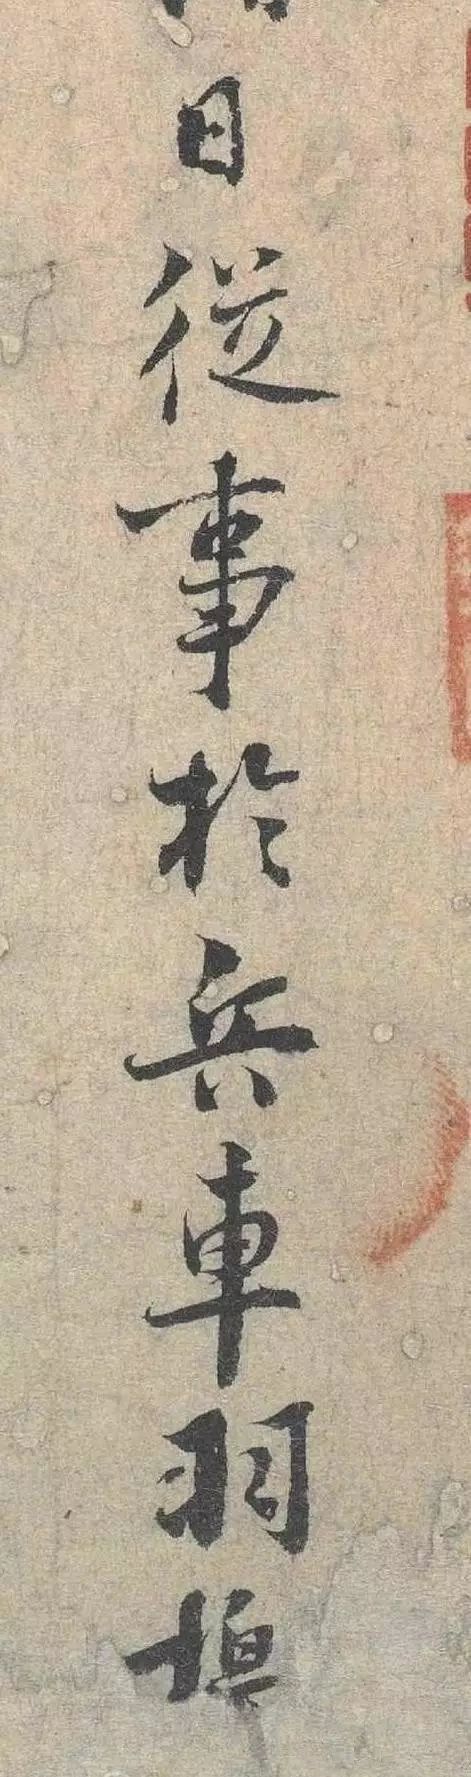 日從事於兵車羽